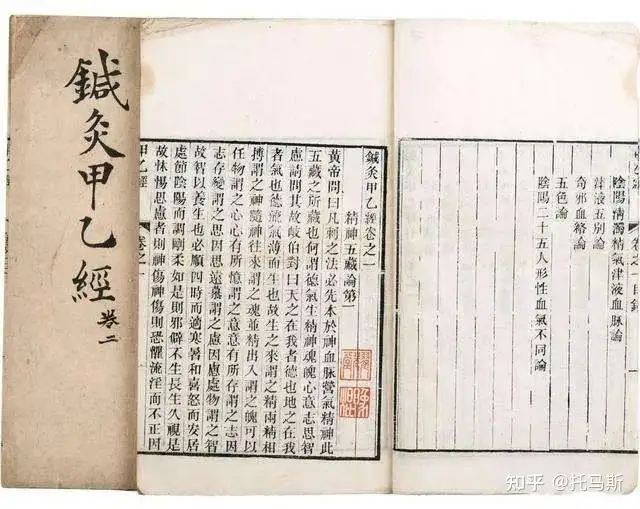 鍼灸甲乙經
卷二
卷之一 目錄
陰陽清濁精氣津液血脉論
津液五別論
奇邪血絡論
五色論
陰陽二十五人形性血氣不同論
鍼灸甲乙經卷之一
精神五藏論第一
黃帝問曰凡刺之法必先本於神血脉營氣精神此
五藏之所藏也何謂德氣生精神魂魄心意志思智
慮請問其故岐伯對曰天之在我者德也地之在我
者氣也德流氣薄而生也故生之來謂之精兩精相
搏謂之神隨神往來謂之魂並精出入謂之魄可以
任物謂之心心有所憶謂之意意有所存謂之志因
志存變謂之思因思遠慕謂之慮因慮處物謂之智
故智以養生也必順四時而適寒暑和喜怒而安居
處節陰陽而調剛柔如是則邪僻不生長生久視是
故怵惕思慮者則神傷神傷則恐懼流淫而不正因
甲乙經 卷之一
知乎 @托马斯